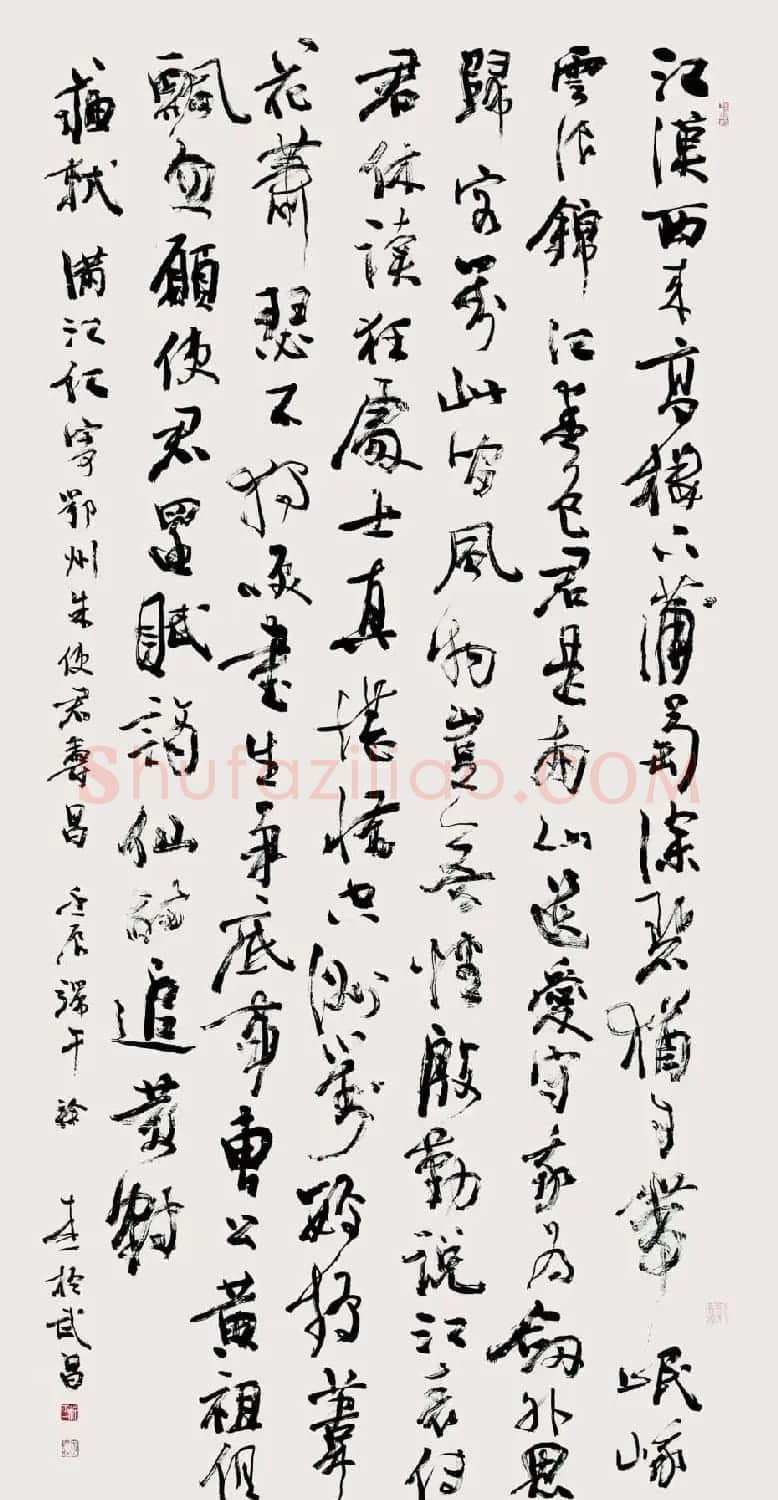 江漢西来高楼下蒲萄深碧猶自帶岷峨
雲浪錦江春色君是南山遺愛守我为劍外思
歸客對此間風物豈無情殷勤說江表传
君休读狂處士真堪惜空洲對鹦鹉葦
花蕭瑟不独笑書生争底事曹公黄祖俱
飄忽願使君還賦謫仙詩追黄鶴
蘇軾 满江红寄鄂州朱使君壽昌 壬辰端午 於武昌
Shufaziliao.COM